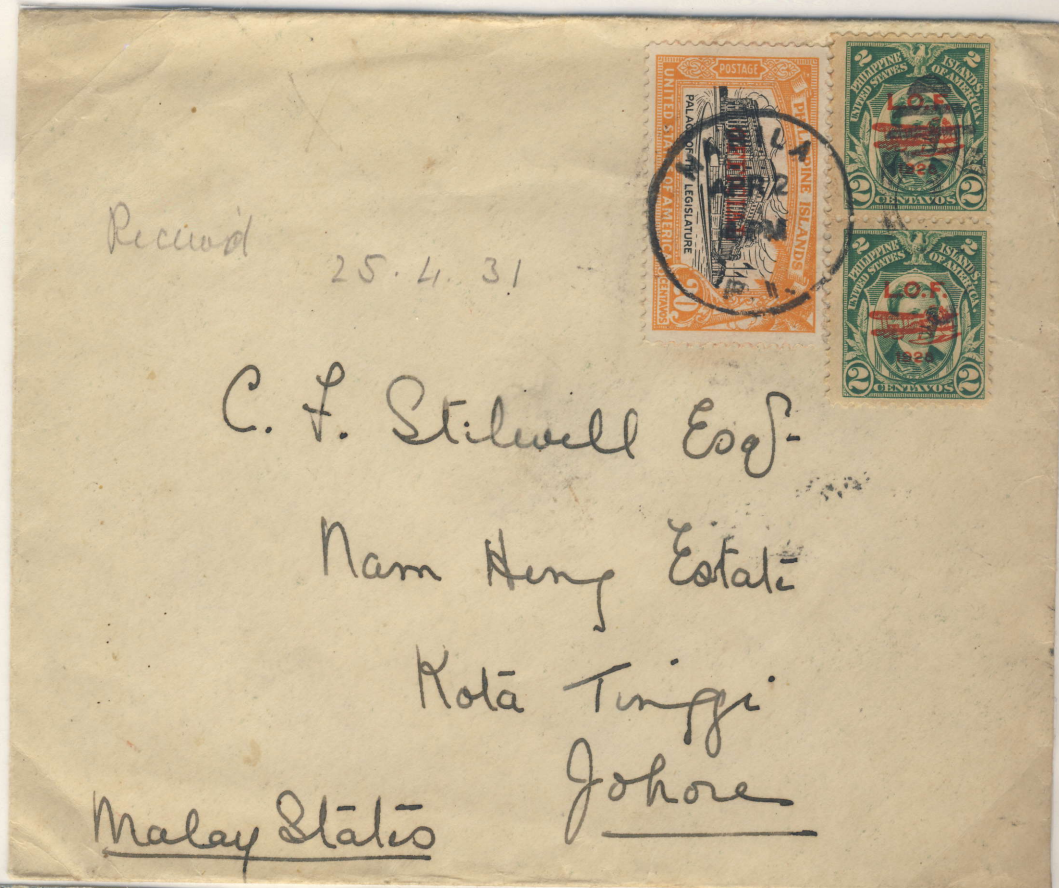 POSTAGE
PHILIPPINE ISLANDS
UNITED STATES OF AMERICA
PALACE OF THE LEGISLATURE
20
CENTAVOS
MANILA
APR 2
PM
P.I.
2 PHILIPPINE ISLANDS 2
UNITED STATES OF AMERICA
L.O.F.
1928
2 CENTAVOS 2
2 PHILIPPINE ISLANDS 2
UNITED STATES OF AMERICA.
L.O.F.
1928
2 CENTAVOS 2
Received
25.4.31
C. F. Stilwell Esq.
Nam Heng Estate
Kota Tinggi
Johore
Malay States